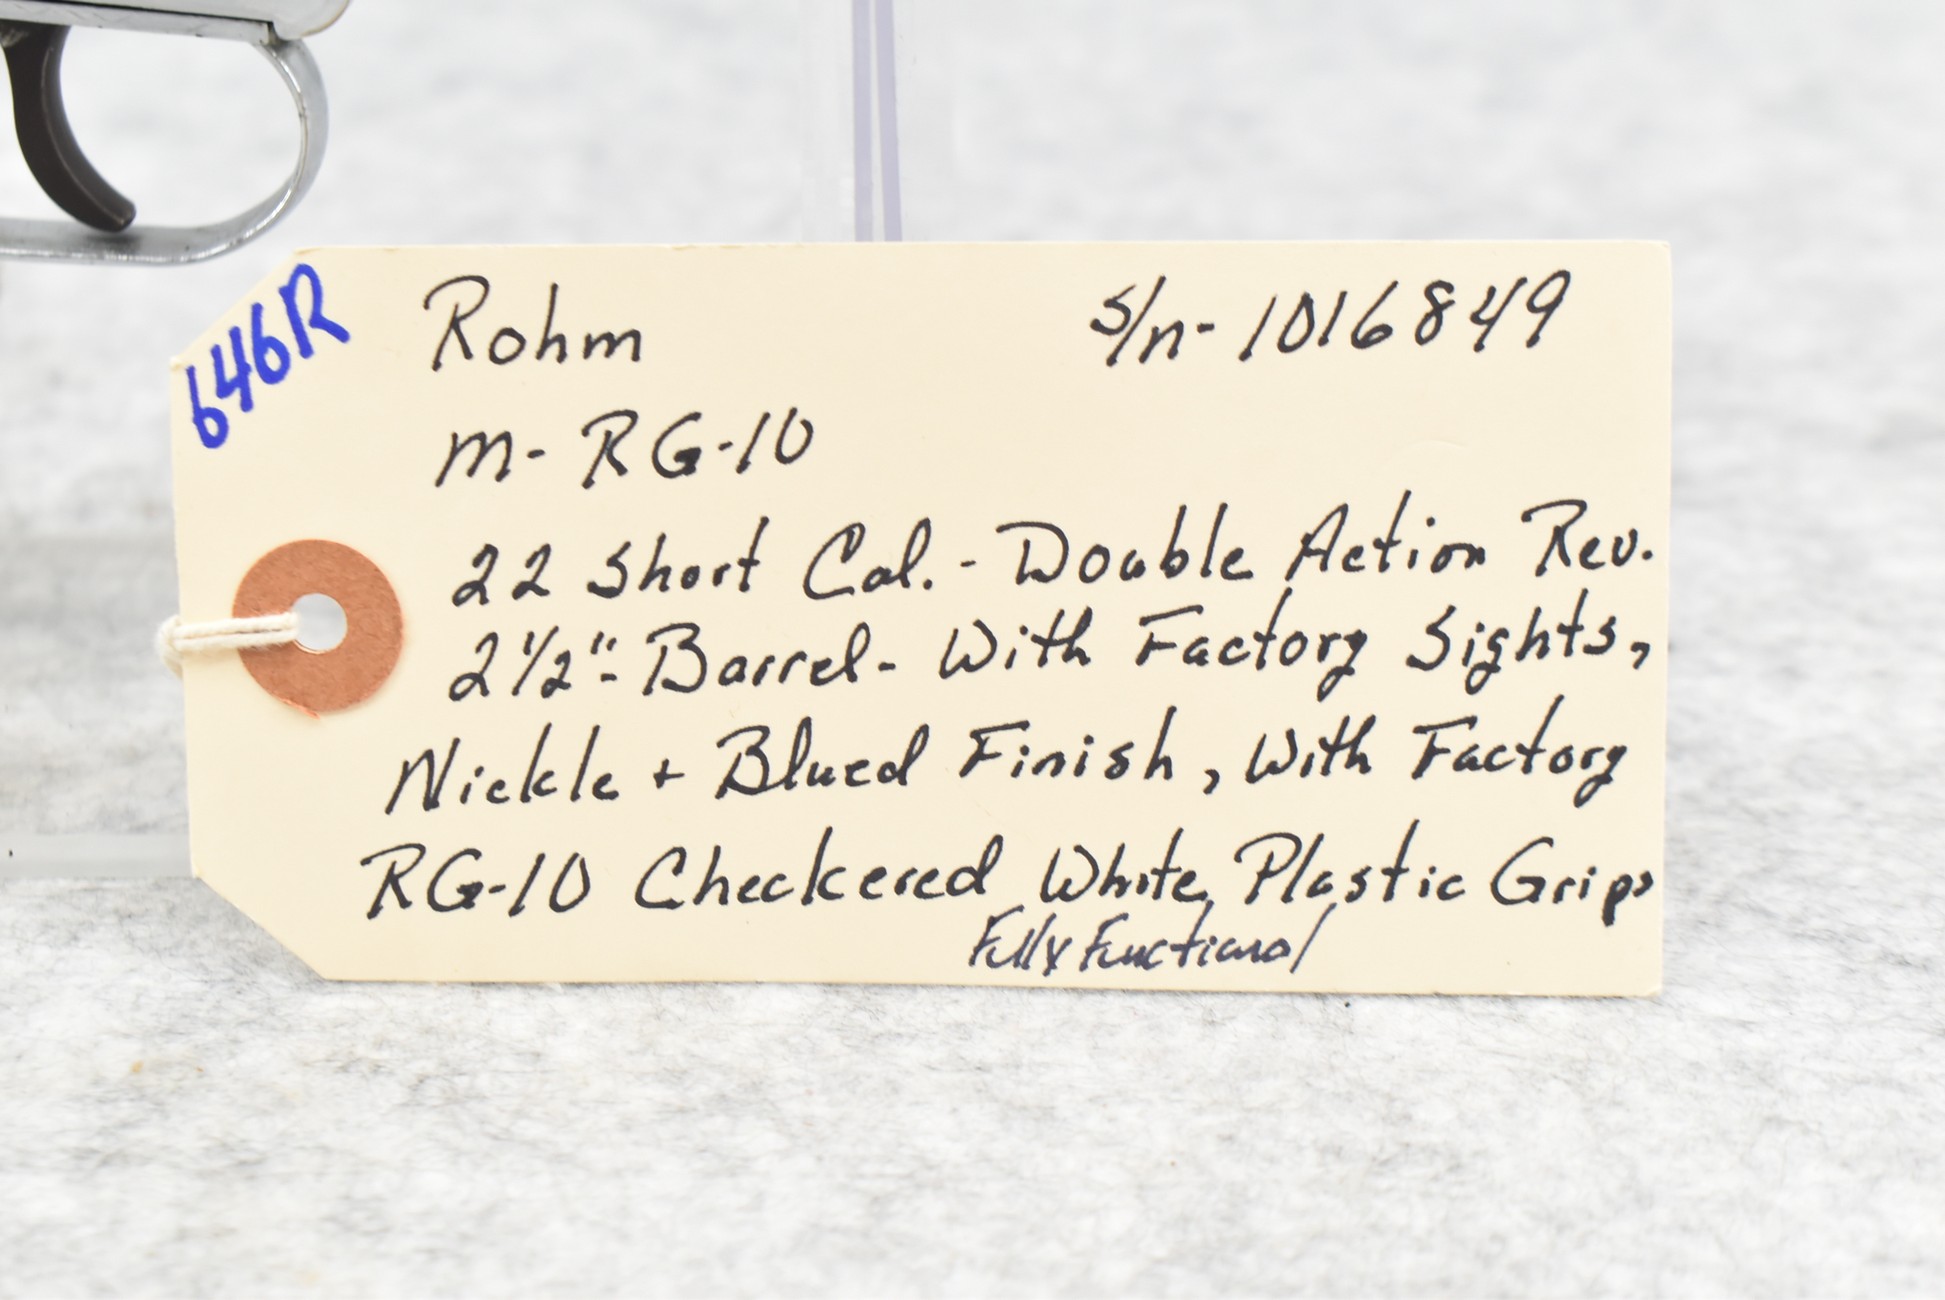 646R
Rohm s/n- 1016849
M- RG-10
22 Short Cal. - Double Action Rev.
2 1/2"- Barrel - With Factory Sights,
Nickle + Blued Finish, With Factory
RG-10 Checkered White Plastic Grips
Fully Functional